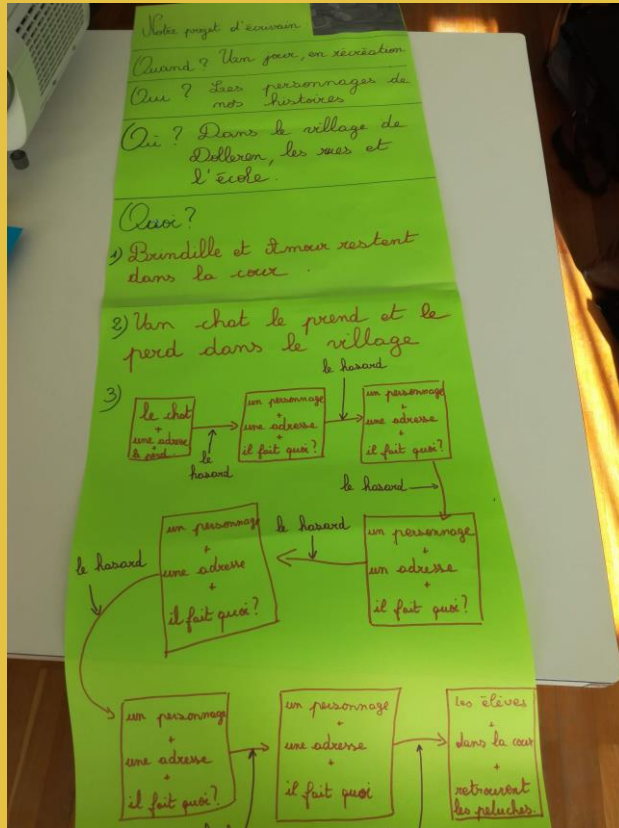 Notre projet d'écrivain
Quand? Un jour, en récréation
Qui? Les personnages de
nos histoires
Où? Dans le village de
Dolleren, les rues et
l'école.
Quoi?
1) Brindille et Amour restent
dans la cour.
2) Un chat le prend et le
perd dans le village
3)
le chat
+
une adresse
le perd.
le
hasard
un personnage
+
une adresse
+
il fait quoi?
le hasard
un personnage
+
une adresse
+
il fait quoi?
le hasard
un personnage
+
un adresse
+
il fait quoi?
le hasard
un personnage
+
une adresse
+
il fait quoi?
le hasard
un personnage
+
une adresse
+
il fait quoi?
un personnage
+
une adresse
+
il fait quoi
les élèves
+
dans la cour
+
retrouvent
les peluches.